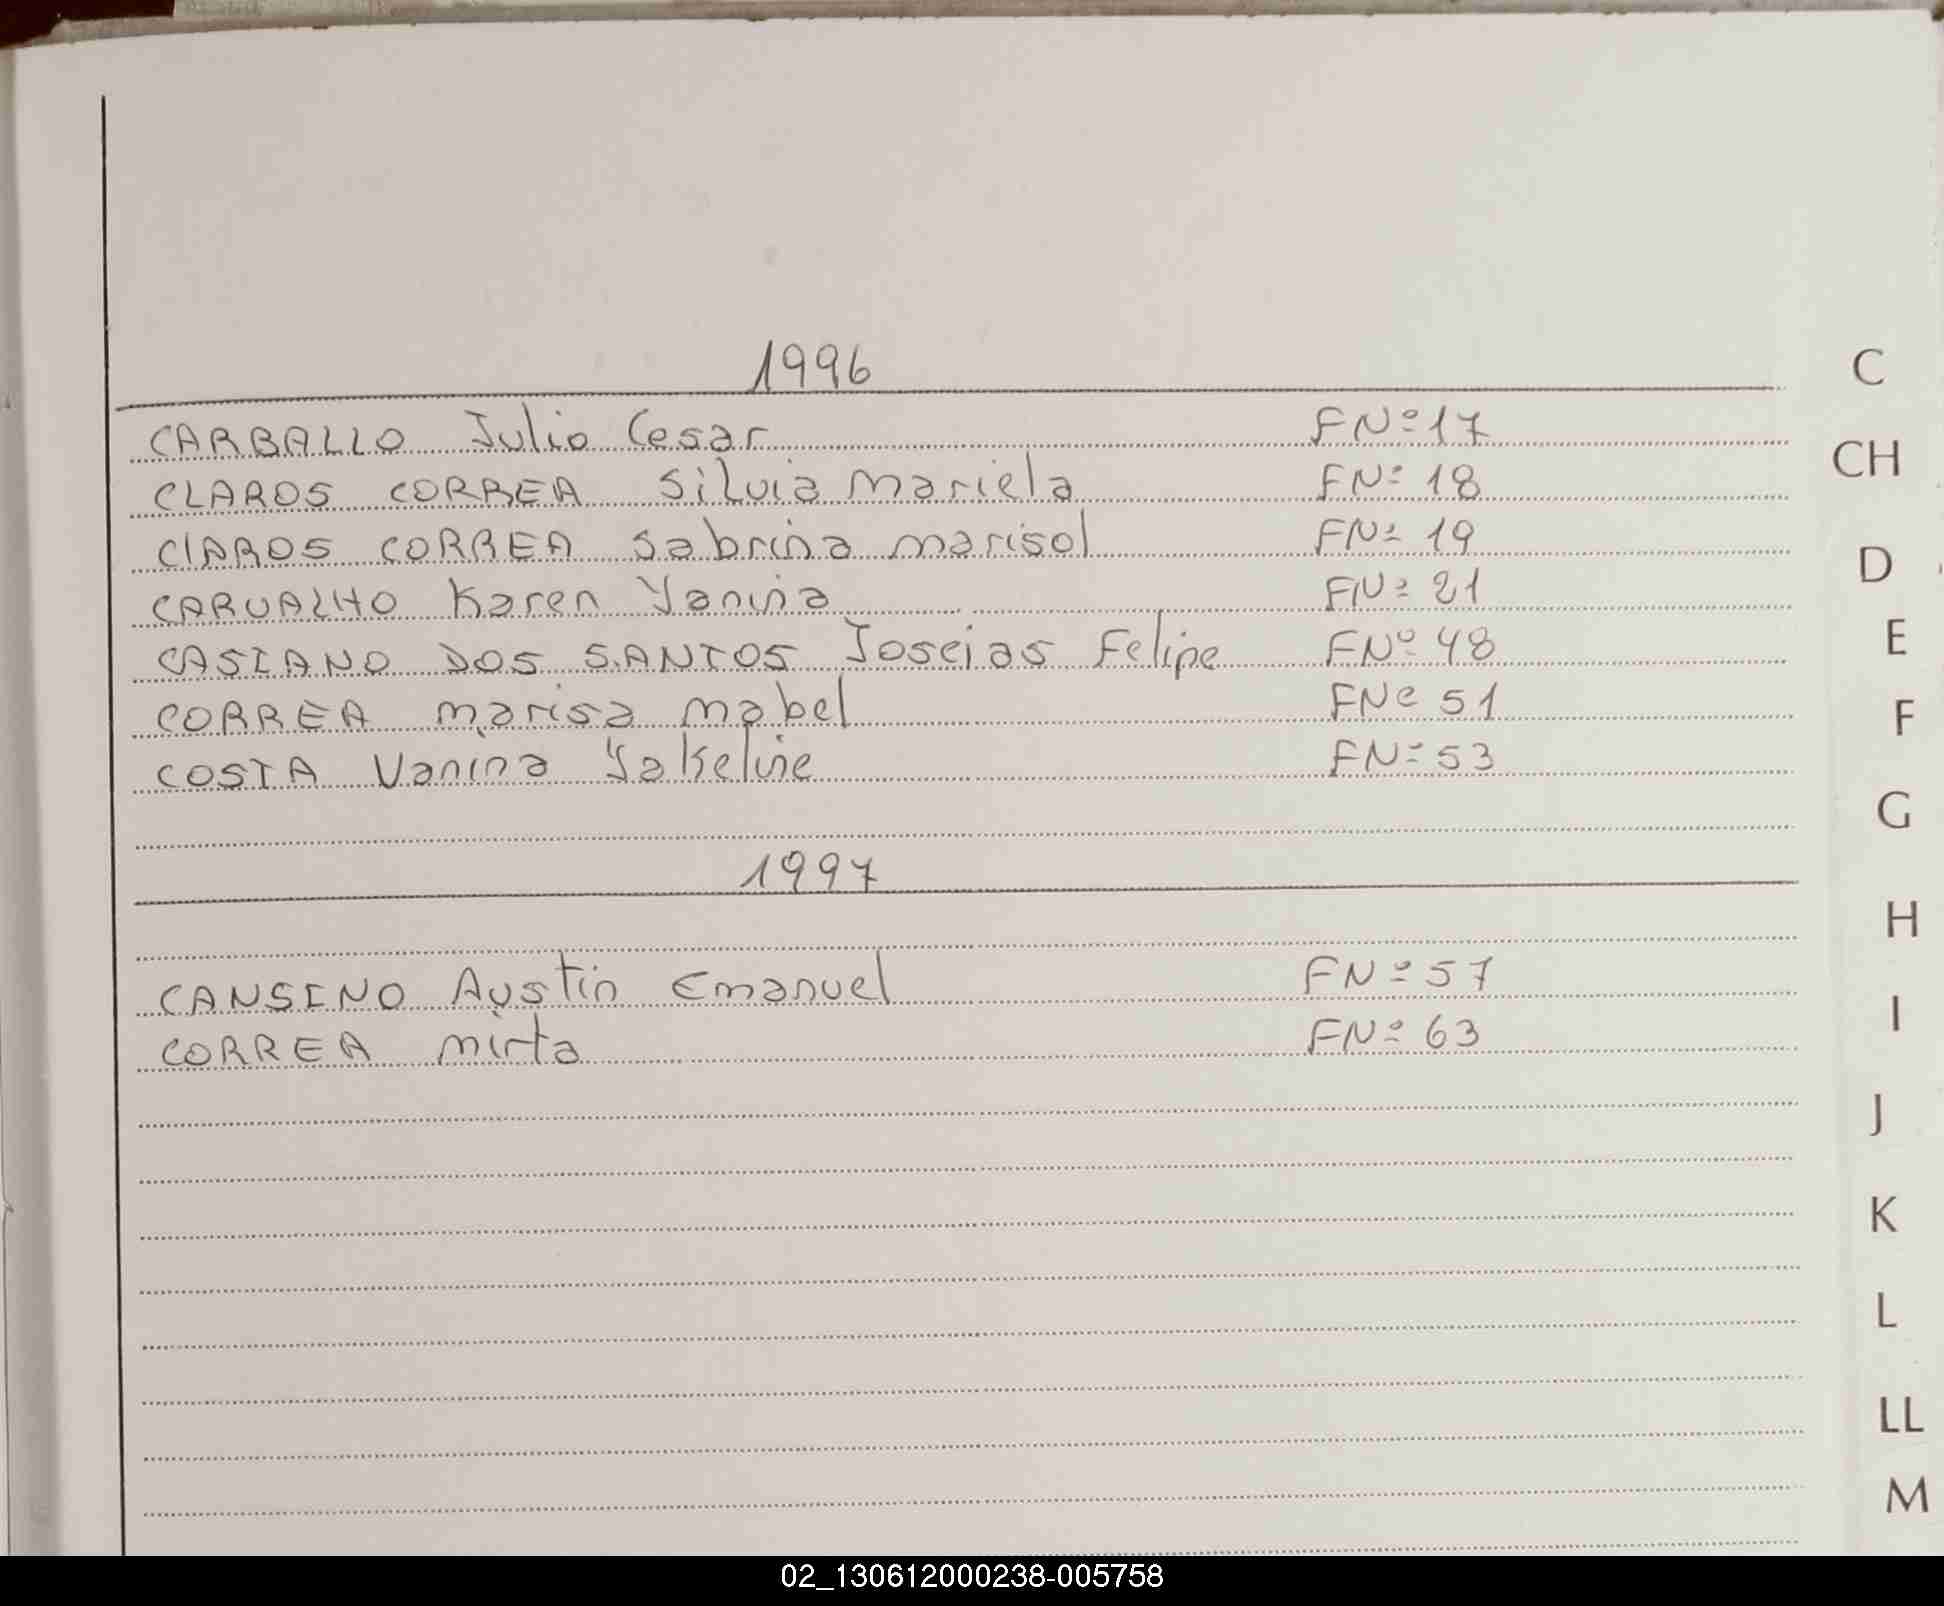 1996
C
CARBALLO Julio Cesar FNº 17
CLAROS CORREA Silvia Mariela FNº 18
CH
ClAROS CORREA Sabrina marisol FNº 19
D
CARVALHO Karen Yanina FNº 21
CASIANO DOS SANTOS Joseias Felipe FNº 48
E
CORREA marisa mabel FNº 51
F
COSTA Vanina Yakeline FNº 53
G
1997
H
CANSINO Austin Emanuel FNº 57
I
CORREA mirta FNº 63
J
K
L
LL
M
02_130612000238-005758